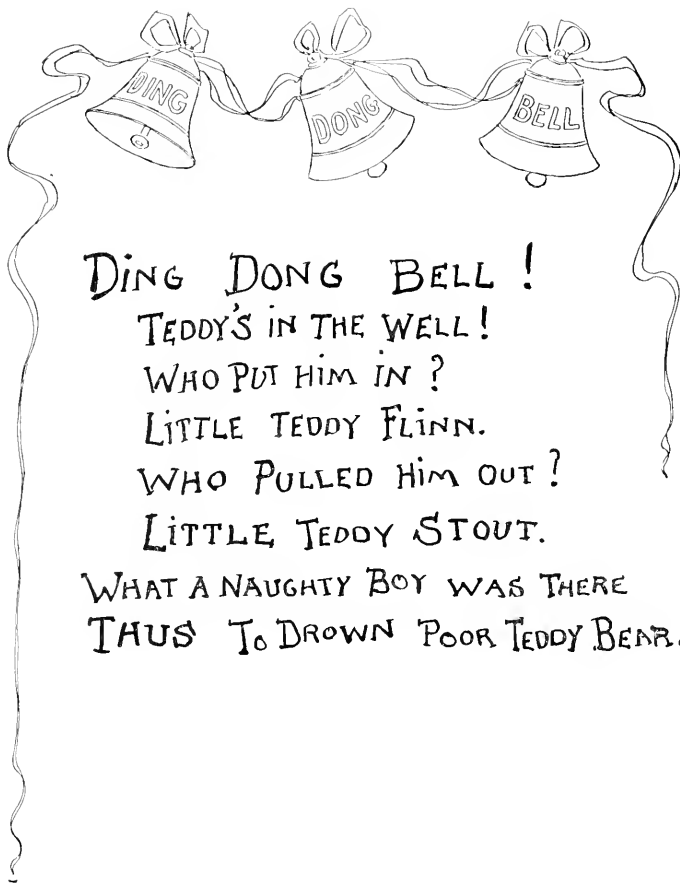 DING
DONG
BELL
DiNG DONG BELL!
TEDDY'S iN THE WELL!
WHO PUT HiM iN?
LiTTLE TEDDY FLiNN.
WHO PULLED HiM OUT?
LiTTLE TEDDY STOUT.
WHAT A NAUGHTY BOY WAS THERE
THUS To DROWN POOR TEDDY BEAR.